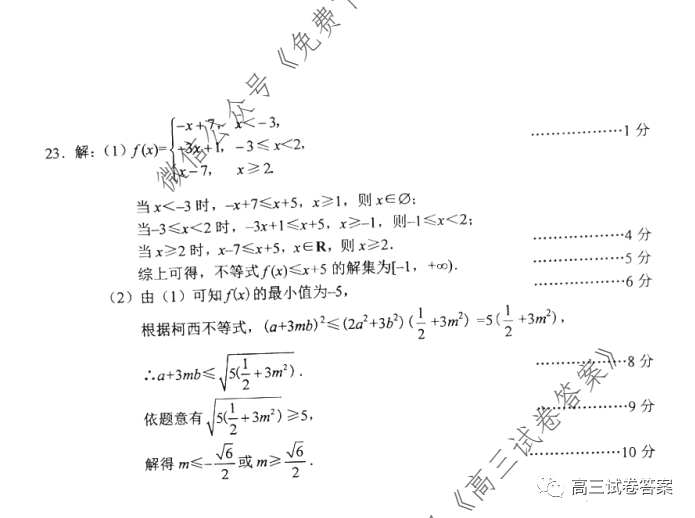 微信公众号《免费
23．解：（1）f(x)={−x+7，x<−3，
−3x+1，−3≤x<2，
x−7，x≥2. ………………1分
当x<−3时，−x+7≤x+5，x≥1，则x∈∅；
当−3≤x<2时，−3x+1≤x+5，x≥−1，则−1≤x<2；
当x≥2时，x−7≤x+5，x∈R，则x≥2． ………………4分
综上可得，不等式f(x)≤x+5的解集为[−1，+∞)． ………………5分
（2）由（1）可知f(x)的最小值为−5， ………………6分
根据柯西不等式，(a+3mb)²≤(2a²+3b²)(1/2+3m²)=5(1/2+3m²)，
∴a+3mb≤√5(1/2+3m²)． ………………8分
依题意有√5(1/2+3m²)≥5， ………………9分
解得m≤−√6/2或m≥√6/2． ………………10分
《高三试卷答案》
高三试卷答案